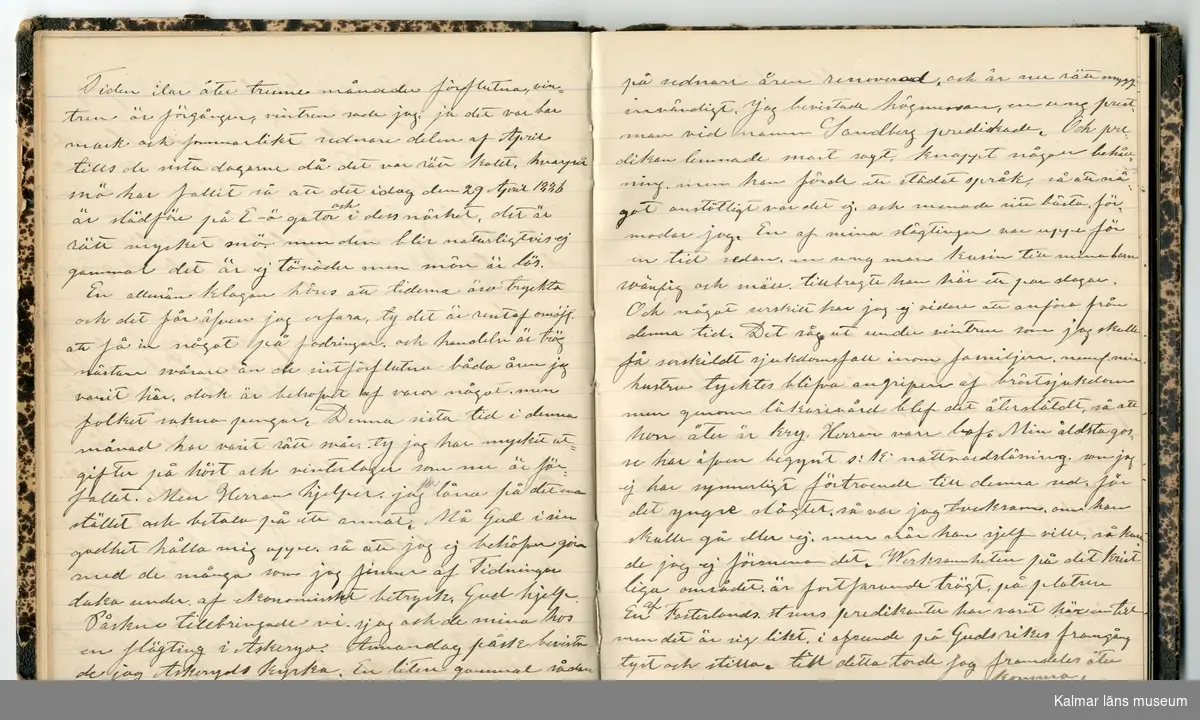 Tiden ilar åter trenne månader förflutna, vin-
tren är förgången, vintren sade jag, ja det var bar
mark och sommarlikt sednare delen af April
tills de sista dagarne då det var rätt kalet, hvarpå
snö har fallit så att det idag den 29 April 1886
är slädföre på E-ö gator och i dess närhet, det är
rätt mycket snö men den blir naturligtvis ej
gammal det är ej töväder men snön är lös.
En allmän klagan höres att tiderna äro tryckta
och det får äfven jag erfara, ty det är rent af omöjl.
att få in något på fodringar, och handeln är trög
nästan svårare än de sistförflutna båda åren jag
varit här, dock är behofvet af varor något, men
folket sakna pengar. Denna sista tid i denna
månad har varit rätt svår, ty jag har mycket ut-
gifter på höst och vinterlager som nu är för-
fallet. Men Herran hjelper, jag får låna på det ena
stället och betala på ett annat. Må Gud i sin
godhet hålla mig uppe, så att jag ej behöfver göra
med de många som jag finner af Tidningar
duka under af ekonomiskt betryck, Gud hjelpe.
Påsken tillbringade vi, jag och de mina hos
en slägting i Askeryd. Annandag påsk bevista-
de jag Askeryds kyrka. En liten gammal sådan
på sednare åren renoverad, och är nu rätt snygg
invändigt. Jag bevistade högmessan, en ung prest
man vid namn Sandberg predikade. Och pre-
dikan lemnade snart sagt, knappt någon behåll
ning, men han förde ett städat språk, så att nå-
got anstötligt var det ej, och menade sitt bästa, för-
modar jag. En af mina slägtingar var uppe för
en tid sedan, en ung man kusin till mina barn
vänfig och när, tillbragte han här ett par dagar.
Och något serskilt har jag ej vidare att anföra från
denna tid. Det såg ut under vintren som jag skulle
få sorskildt sjukdomsfall inom familjen, neml. min
hustru tycktes blifva angripen af bröstsjukdom
men genom läkarevård blef det återstäldt, så att
hon åter är kry. Herran vare lof. Min äldsta gos-
se har äfven begynt s: k: nattvardsläsning, som jag
ej har synnerligt förtroende till denna sed, för
det yngre slägtet, så var jag tveksam, om han
skulle gå eller ej, men när han sjelf ville, så kun-
de jag ej förmena det. Verksamheten på det krist
liga området, är fortfarande trögt, på platsen
En af Fosterlands. st:ns predikanter har varit här
men det är sig likt, i afseende på Guds rikes framgång
tyst och stilla. till detta torde jag framdeles åter
komma.
Kalmar läns museum